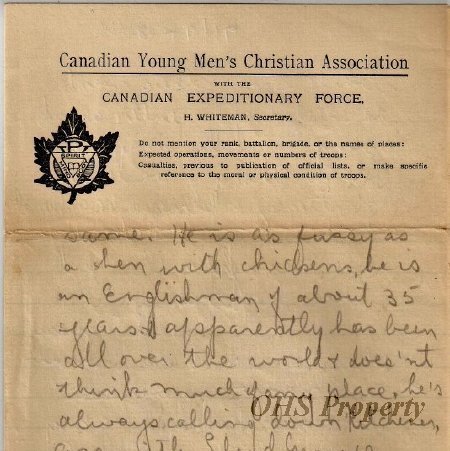 Canadian Young Men's Christian Association
WITH THE
CANADIAN EXPEDITIONARY FORCE,
H. WHITEMAN, Secretary.
Do not mention your rank, battalion, brigade, or the names of places:
Expected operations, movements or numbers of troops:
Casualties, previous to publication of official lists, or make specific
reference to the moral or physical condition of troops.
SPIRIT
He is as fussy as
a hen with chickens, he is
an Englishman of about 35
years & apparently has been
all over the world & does'nt
think much of any place, he's
always calling down Kitchener,
OHS Property